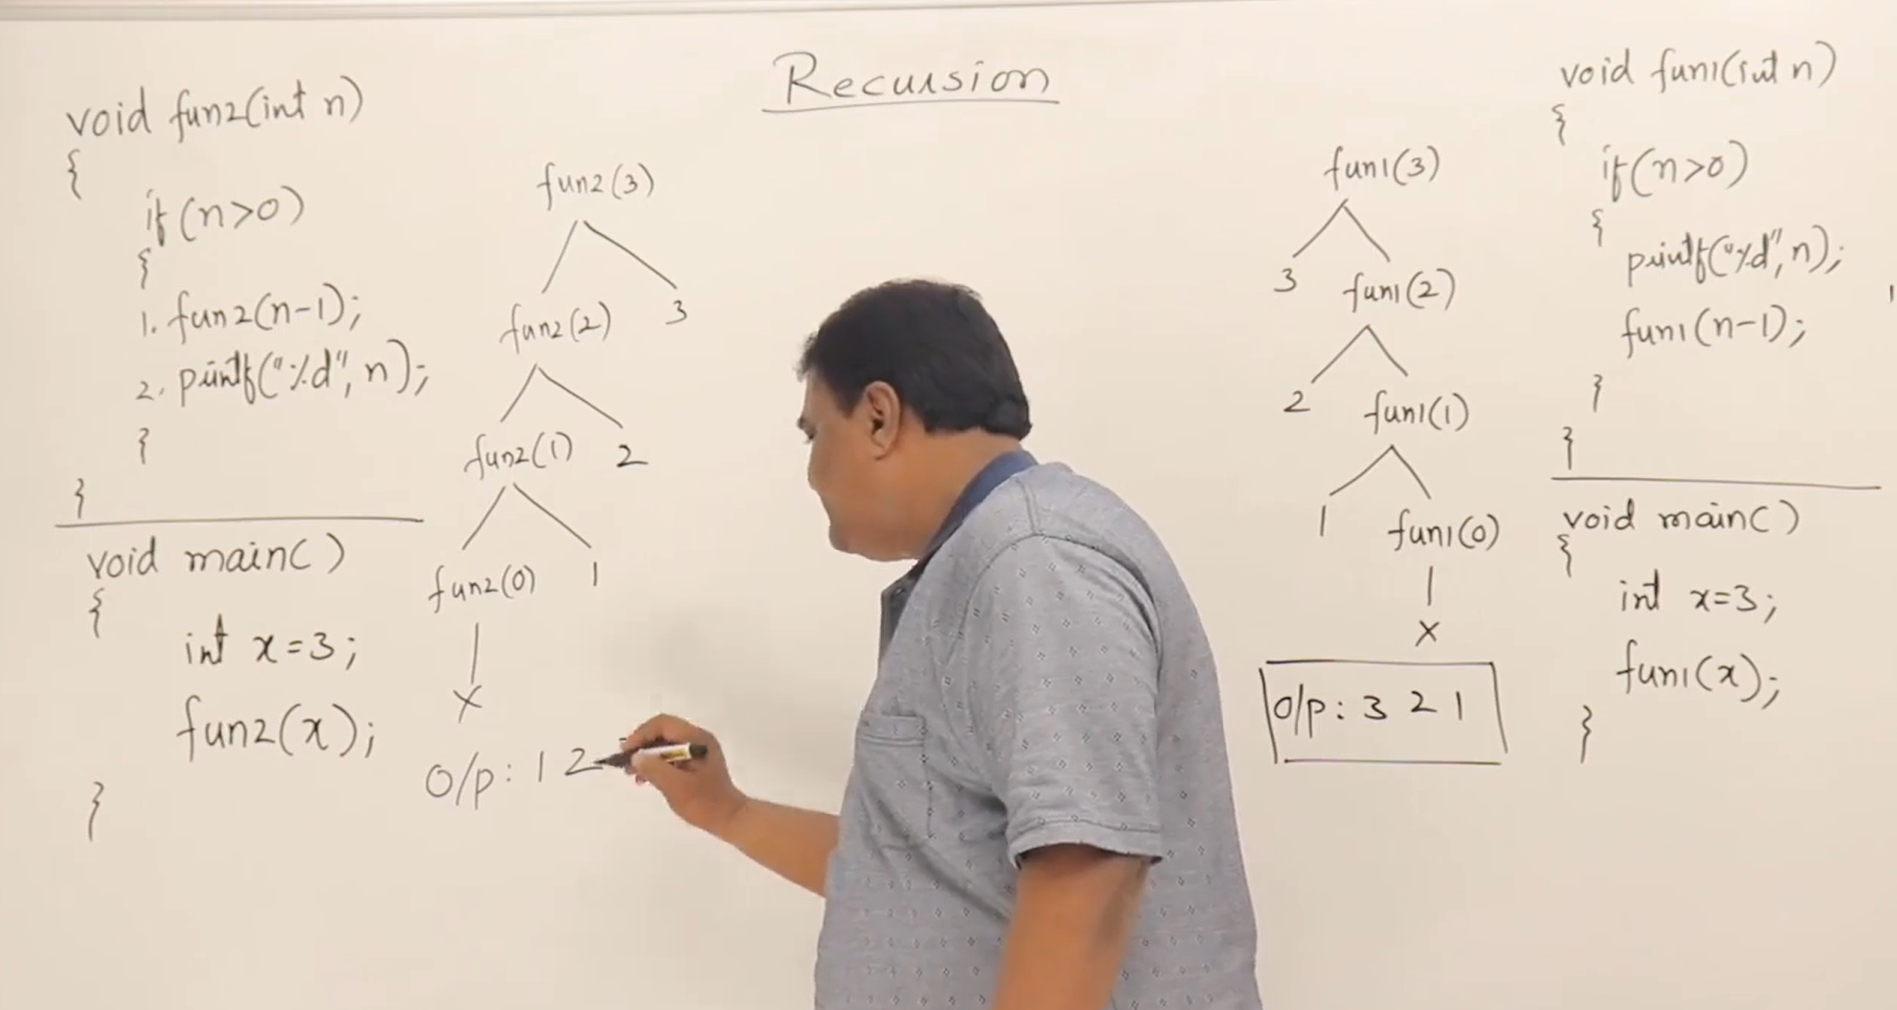 Recursion
void fun2(int n)
{
if(n>0)
{
1. fun2(n-1);
2. printf("%d", n);
}
}
void main()
{
int x=3;
fun2(x);
}
fun2(3)
fun2(2) 3
fun2(1) 2
fun2(0) 1
X
O/p: 1 2
fun1(3)
3 fun1(2)
2 fun1(1)
1 fun1(0)
X
O/p: 3 2 1
void fun1(int n)
{
if(n>0)
{
printf("%d", n);
fun1(n-1);
}
}
void main()
{
int x=3;
fun1(x);
}